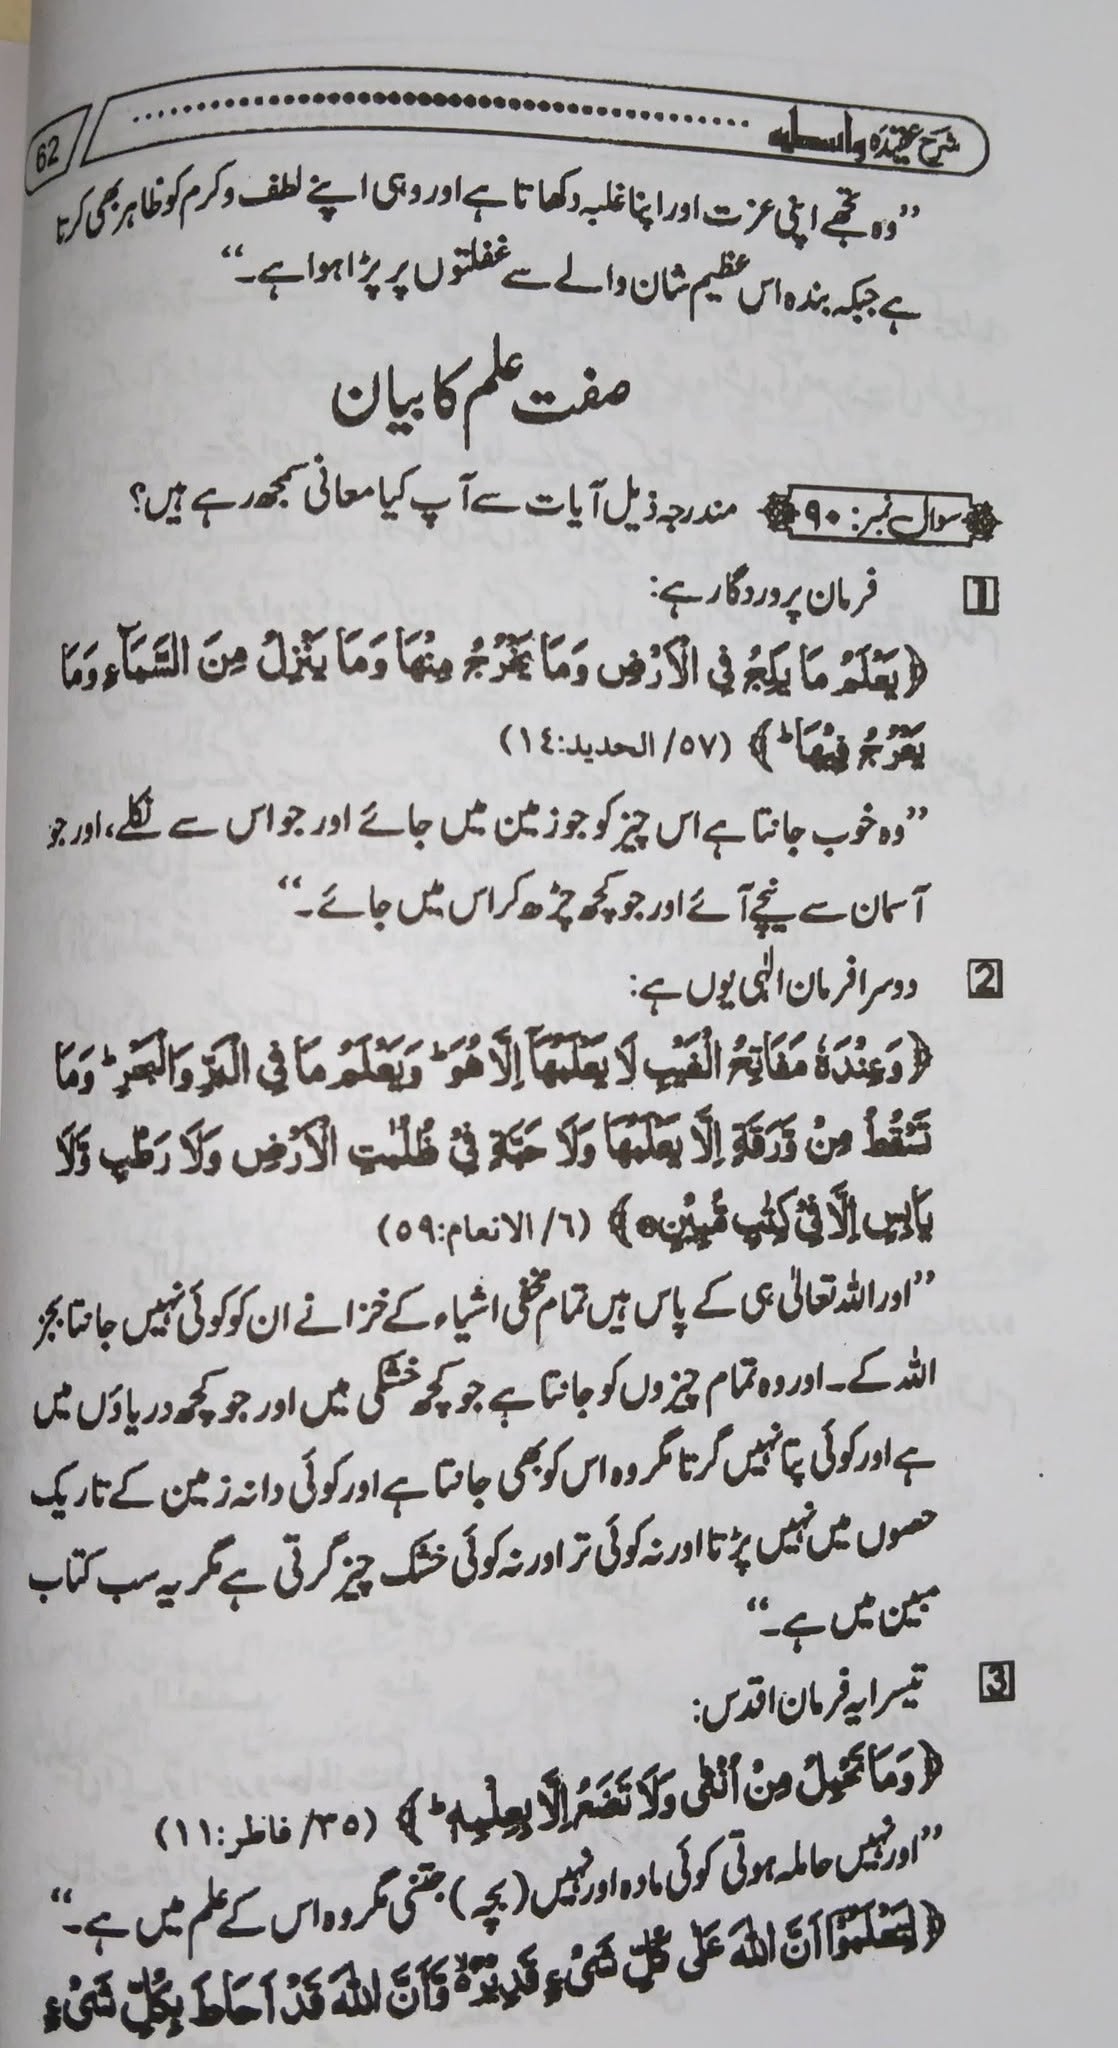 شرح عقیدہ واسطیہ
62
’’وہ تجھے اپنی عزت اور اپنا غلبہ دکھاتا ہے اور وہی اپنے لطف و کرم کو ظاہر بھی کرتا
ہے جبکہ بندہ اس عظیم شان والے سے غفلتوں پر پڑا ہوا ہے۔‘‘
صفت علم کا بیان
سوال نمبر: ۹۰ مندرجہ ذیل آیات سے آپ کیا معانی سمجھ رہے ہیں؟
1 فرمان پروردگار ہے:
﴿يَعْلَمُ مَا يَلِجُ فِي الْاَرْضِ وَمَا يَخْرُجُ مِنْهَا وَمَا يَنْزِلُ مِنَ السَّمَآءِ وَمَا
يَعْرُجُ فِيْهَا ؕ﴾ (٥٧/ الحديد:١٤)
’’وہ خوب جانتا ہے اس چیز کو جو زمین میں جائے اور جو اس سے نکلے، اور جو
آسمان سے نیچے آئے اور جو کچھ چڑھ کر اس میں جائے۔‘‘
2 دوسرا فرمان الٰہی یوں ہے:
﴿وَعِنْدَهٗ مَفَاتِحُ الْغَيْبِ لَا يَعْلَمُهَاۤ اِلَّا هُوَ ؕ وَيَعْلَمُ مَا فِي الْبَرِّ وَالْبَحْرِ ؕ وَمَا
تَسْقُطُ مِنْ وَّرَقَةٍ اِلَّا يَعْلَمُهَا وَلَا حَبَّةٍ فِيْ ظُلُمٰتِ الْاَرْضِ وَلَا رَطْبٍ وَّلَا
يَابِسٍ اِلَّا فِيْ كِتٰبٍ مُّبِيْنٍ۝﴾ (٦/ الانعام:٥٩)
’’اور اللہ تعالیٰ ہی کے پاس ہیں تمام مخفی اشیاء کے خزانے ان کو کوئی نہیں جانتا بجز
اللہ کے۔ اور وہ تمام چیزوں کو جانتا ہے جو کچھ خشکی میں اور جو کچھ دریاؤں میں
ہے اور کوئی پتا نہیں گرتا مگر وہ اس کو بھی جانتا ہے اور کوئی دانہ زمین کے تاریک
حصوں میں نہیں پڑتا اور نہ کوئی تر اور نہ کوئی خشک چیز گرتی ہے مگر یہ سب کتاب
مبین میں ہے۔‘‘
3 تیسرا یہ فرمان اقدس:
﴿وَمَا تَحْمِلُ مِنْ اُنْثٰى وَلَا تَضَعُ اِلَّا بِعِلْمِهٖ ؕ﴾ (٣٥/ فاطر:١١)
’’اور نہیں حاملہ ہوتی کوئی مادہ اور نہیں (بچہ) جنتی مگر وہ اس کے علم میں ہے۔‘‘
﴿لِتَعْلَمُوْۤا اَنَّ اللّٰهَ عَلٰى كُلِّ شَيْءٍ قَدِيْرٌ ۙ۬ وَّاَنَّ اللّٰهَ قَدْ اَحَاطَ بِكُلِّ شَيْءٍ